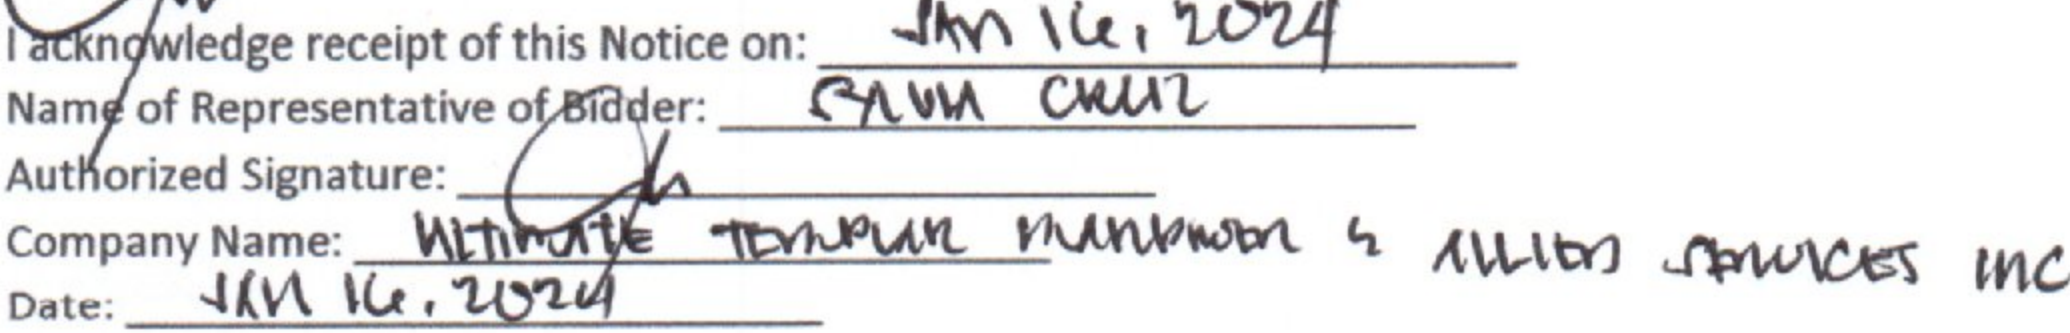 I acknowledge receipt of this Notice on: JAN 16, 2024
Name of Representative of Bidder: CRUZ
Authorized Signature:
Company Name: ULTIMATE TEMPLAR MANPOWER & ALLIED SERVICES INC
Date: JAN 16, 2024